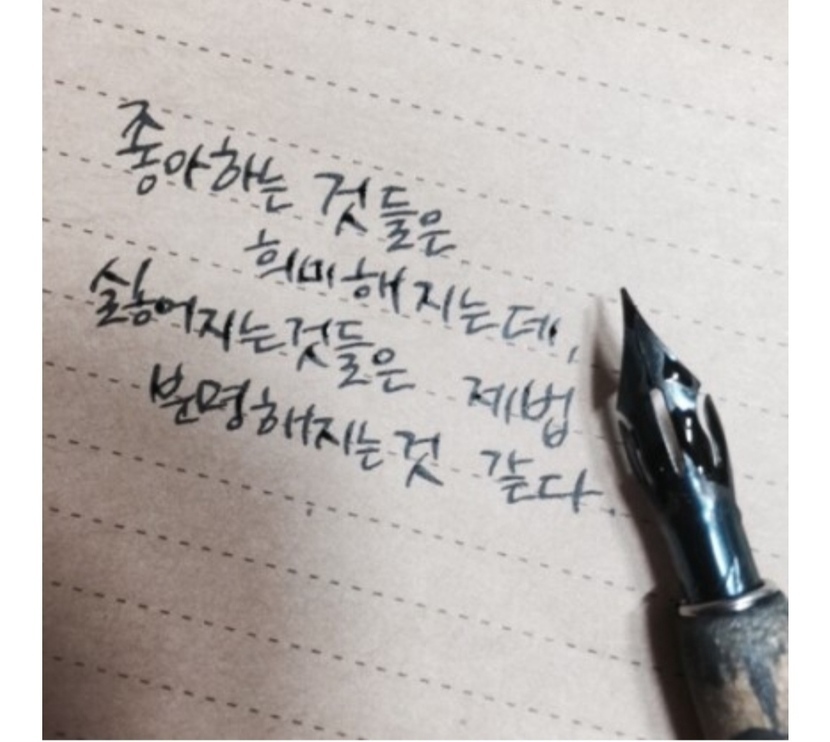 좋아하는 것들은
희미해지는데,
싫어지는것들은 제법
분명해지는것 같다.